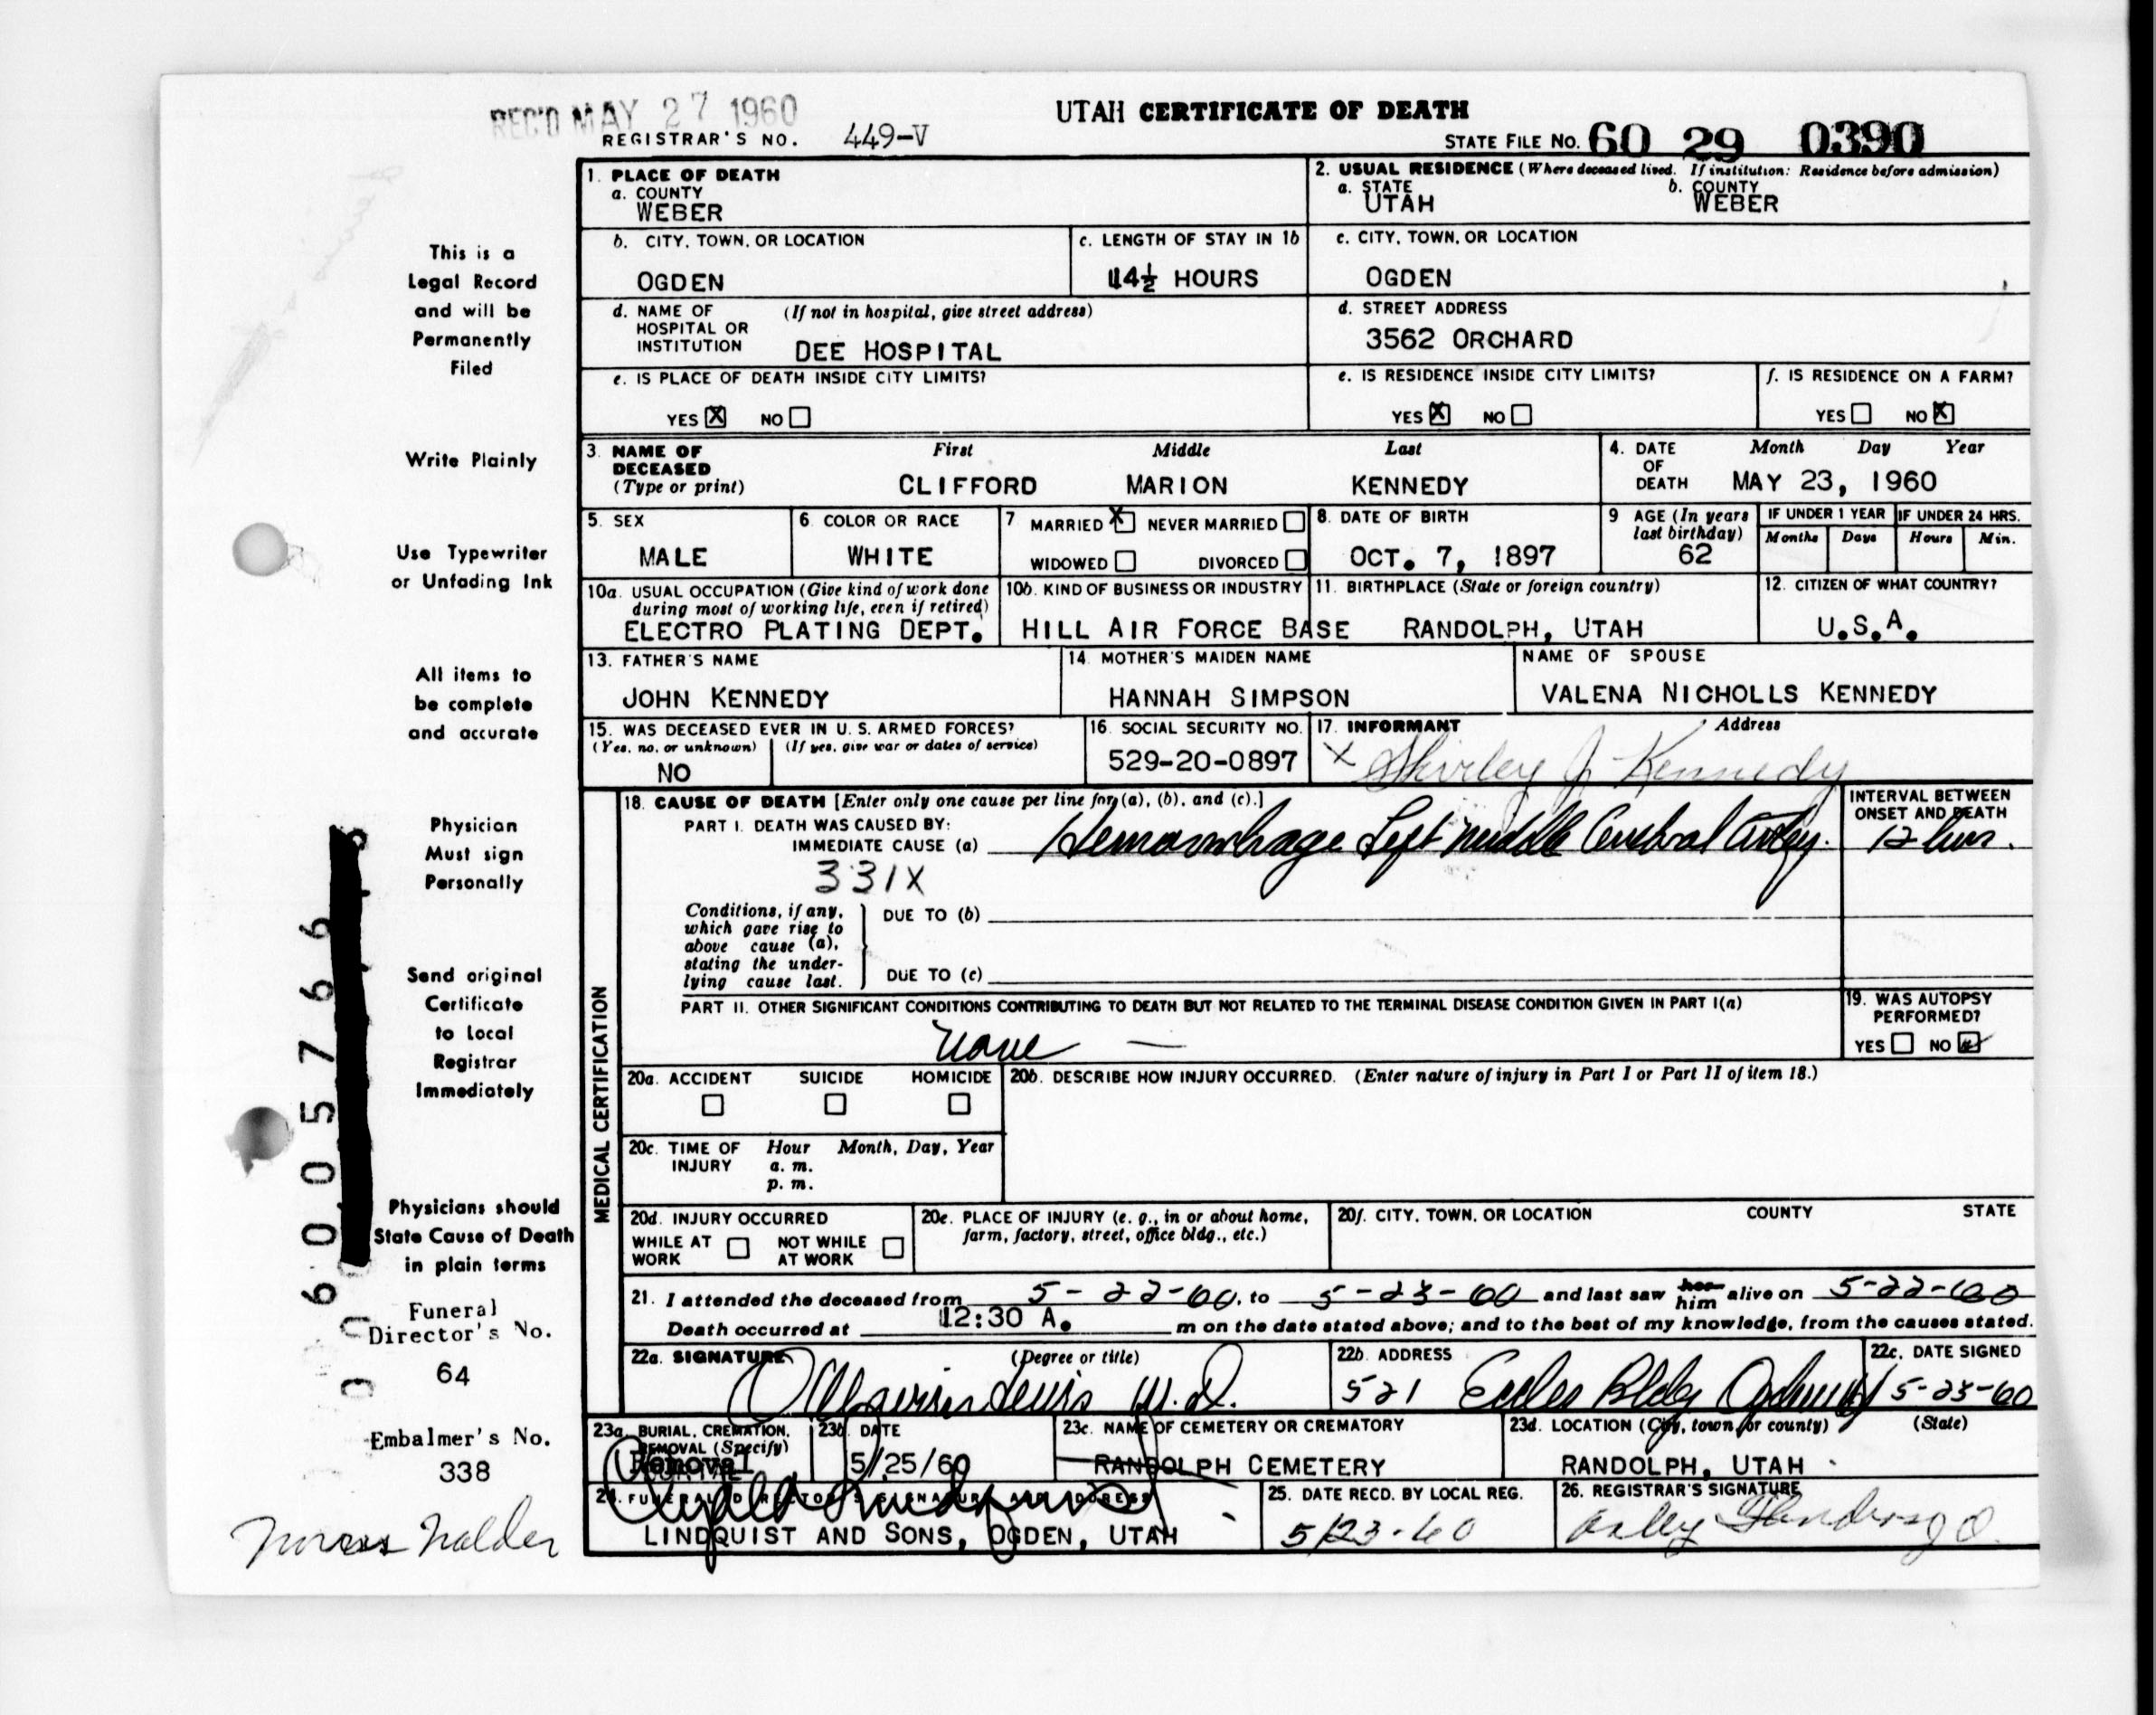 REC'D MAY 27 1960
UTAH CERTIFICATE OF DEATH
REGISTRAR'S NO. 449-V
STATE FILE NO. 60 29 0390
This is a
Legal Record
and will be
Permanently
Filed
Write Plainly
Use Typewriter
or Unfading Ink
All items to
be complete
and accurate
Physician
Must sign
Personally
Send original
Certificate
to Local
Registrar
Immediately
Physicians should
State Cause of Death
in plain terms
Funeral
Director's No.
64
Embalmer's No.
338
6005766
1. PLACE OF DEATH
a. COUNTY
WEBER
2. USUAL RESIDENCE (Where deceased lived. If institution: Residence before admission)
a. STATE b. COUNTY
UTAH WEBER
b. CITY, TOWN, OR LOCATION
OGDEN
c. LENGTH OF STAY IN 1b
14½ HOURS
c. CITY, TOWN, OR LOCATION
OGDEN
d. NAME OF (If not in hospital, give street address)
HOSPITAL OR
INSTITUTION DEE HOSPITAL
d. STREET ADDRESS
3562 ORCHARD
e. IS PLACE OF DEATH INSIDE CITY LIMITS?
YES X NO
e. IS RESIDENCE INSIDE CITY LIMITS?
YES X NO
f. IS RESIDENCE ON A FARM?
YES NO X
3. NAME OF First Middle Last
DECEASED
(Type or print) CLIFFORD MARION KENNEDY
4. DATE Month Day Year
OF
DEATH MAY 23, 1960
5. SEX
MALE
6. COLOR OR RACE
WHITE
7 MARRIED X NEVER MARRIED
WIDOWED DIVORCED
8. DATE OF BIRTH
OCT. 7, 1897
9 AGE (In years
last birthday)
62
IF UNDER 1 YEAR IF UNDER 24 HRS.
Months Days Hours Min.
10a. USUAL OCCUPATION (Give kind of work done
during most of working life, even if retired)
ELECTRO PLATING DEPT.
10b. KIND OF BUSINESS OR INDUSTRY
HILL AIR FORCE BASE
11. BIRTHPLACE (State or foreign country)
RANDOLPH, UTAH
12. CITIZEN OF WHAT COUNTRY?
U.S.A.
13. FATHER'S NAME
JOHN KENNEDY
14. MOTHER'S MAIDEN NAME
HANNAH SIMPSON
NAME OF SPOUSE
VALENA NICHOLLS KENNEDY
15. WAS DECEASED EVER IN U. S. ARMED FORCES?
(Yes, no, or unknown) (If yes, give war or dates of service)
NO
16. SOCIAL SECURITY NO.
529-20-0897
17. INFORMANT Address
x Shirley J Kennedy
MEDICAL CERTIFICATION
18. CAUSE OF DEATH [Enter only one cause per line for (a), (b), and (c).]
PART I. DEATH WAS CAUSED BY:
IMMEDIATE CAUSE (a) Hemorrhage Left middle Cerebral artery.
331X
INTERVAL BETWEEN
ONSET AND DEATH
12 hrs.
Conditions, if any,
which gave rise to
above cause (a),
stating the under-
lying cause last.
DUE TO (b)
DUE TO (c)
PART II. OTHER SIGNIFICANT CONDITIONS CONTRIBUTING TO DEATH BUT NOT RELATED TO THE TERMINAL DISEASE CONDITION GIVEN IN PART I(a)
none —
19. WAS AUTOPSY
PERFORMED?
YES NO
20a. ACCIDENT SUICIDE HOMICIDE
20b. DESCRIBE HOW INJURY OCCURRED. (Enter nature of injury in Part I or Part II of item 18.)
20c. TIME OF Hour Month, Day, Year
INJURY a. m.
p. m.
20d. INJURY OCCURRED
WHILE AT NOT WHILE
WORK AT WORK
20e. PLACE OF INJURY (e. g., in or about home,
farm, factory, street, office bldg., etc.)
20f. CITY, TOWN, OR LOCATION COUNTY STATE
21. I attended the deceased from 5-22-60, to 5-23-60 and last saw her him alive on 5-22-60
Death occurred at 12:30 A. m on the date stated above; and to the best of my knowledge, from the causes stated.
22a. SIGNATURE (Degree or title)
Lewis M.D.
22b. ADDRESS
521 Eccles Bldg Ogden
22c. DATE SIGNED
5-23-60
23a. BURIAL, CREMATION,
REMOVAL (Specify)
Removal
23b. DATE
5/25/60
23c. NAME OF CEMETERY OR CREMATORY
RANDOLPH CEMETERY
23d. LOCATION (City, town, or county) (State)
RANDOLPH, UTAH
24. FUNERAL DIRECTOR'S SIGNATURE AND ADDRESS
LINDQUIST AND SONS, OGDEN, UTAH
25. DATE RECD. BY LOCAL REG.
5/23-60
26. REGISTRAR'S SIGNATURE